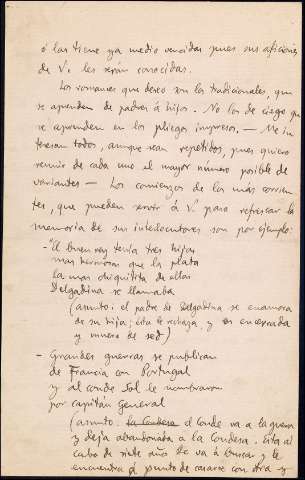 ó las tiene ya medio vencidas pues sus aficiones
de V. les serán conocidas.
Los romances que deseo son los tradicionales, que
se aprenden de padres á hijos. No los de ciego que
se aprenden en los pliegos impresos. — Me in-
teresan todos, aunque sean repetidos, pues quiero
reunir de cada uno el mayor número posible de
variantes — Los comienzos de los mas corrien-
tes, que pueden servir á V. para refrescar la
memoria de sus interlocutores son por ejemplo:
- "El buen rey tenía tres hijas
mas hermosas que la plata
la mas chiquitita de ellas
Delgadina se llamaba
(asunto: el padre de Delgadina se enamora
de su hija; ésta le rechaza y es encerrada
y muere de sed)
- Grandes guerras se publican
de Francia con Portugal
y al conde Sol le nombraron
por capitán General
(asunto: la Condesa el conde va a la guerra
y deja abandonada a la Condesa. Esta al
cabo de siete años le va á buscar y le
encuentra á punto de casarse con otra y